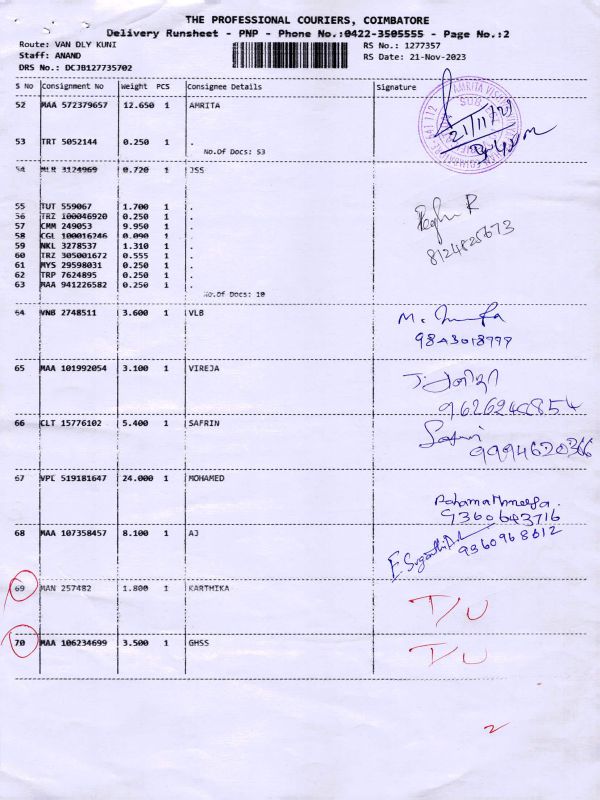 THE PROFESSIONAL COURIERS, COIMBATORE
Delivery Runsheet - PNP - Phone No.:0422-3505555 - Page No.:2
Route: VAN DLY KUNI RS No.: 1277357
Staff: ANAND RS Date: 21-Nov-2023
DRS No.: DCJB127735702
S No Consignment No Weight PCS Consignee Details Signature
52 MAA 572379657 12.650 1 AMRITA
21/11/23
53 TRT 5052144 0.250 1 .
No.Of Docs: 53
54 MLR 3124969 0.720 1 JSS
55 TUT 559067 1.700 1 .
56 TRZ 100046920 0.250 1 .
57 CMM 249053 9.950 1 .
58 CGL 100016246 0.090 1 .
59 NKL 3278537 1.310 1 .
60 TRZ 305001672 0.555 1 .
61 MYS 29598031 0.250 1 .
62 TRP 7624895 0.250 1 .
63 MAA 941226582 0.250 1 .
No.Of Docs: 10
8124825673
64 VNB 2748511 3.600 1 VLB
9843018777
65 MAA 101992054 3.100 1 VIREJA
9626240854
66 CLT 15776102 5.400 1 SAFRIN
Safrin
9994620366
67 VPL 519181647 24.000 1 MOHAMED
9360643716
68 MAA 107358457 8.100 1 AJ
9360968612
69 MAN 257482 1.800 1 KARTHIKA
T/U
70 MAA 106234699 3.500 1 GHSS
T/U
2